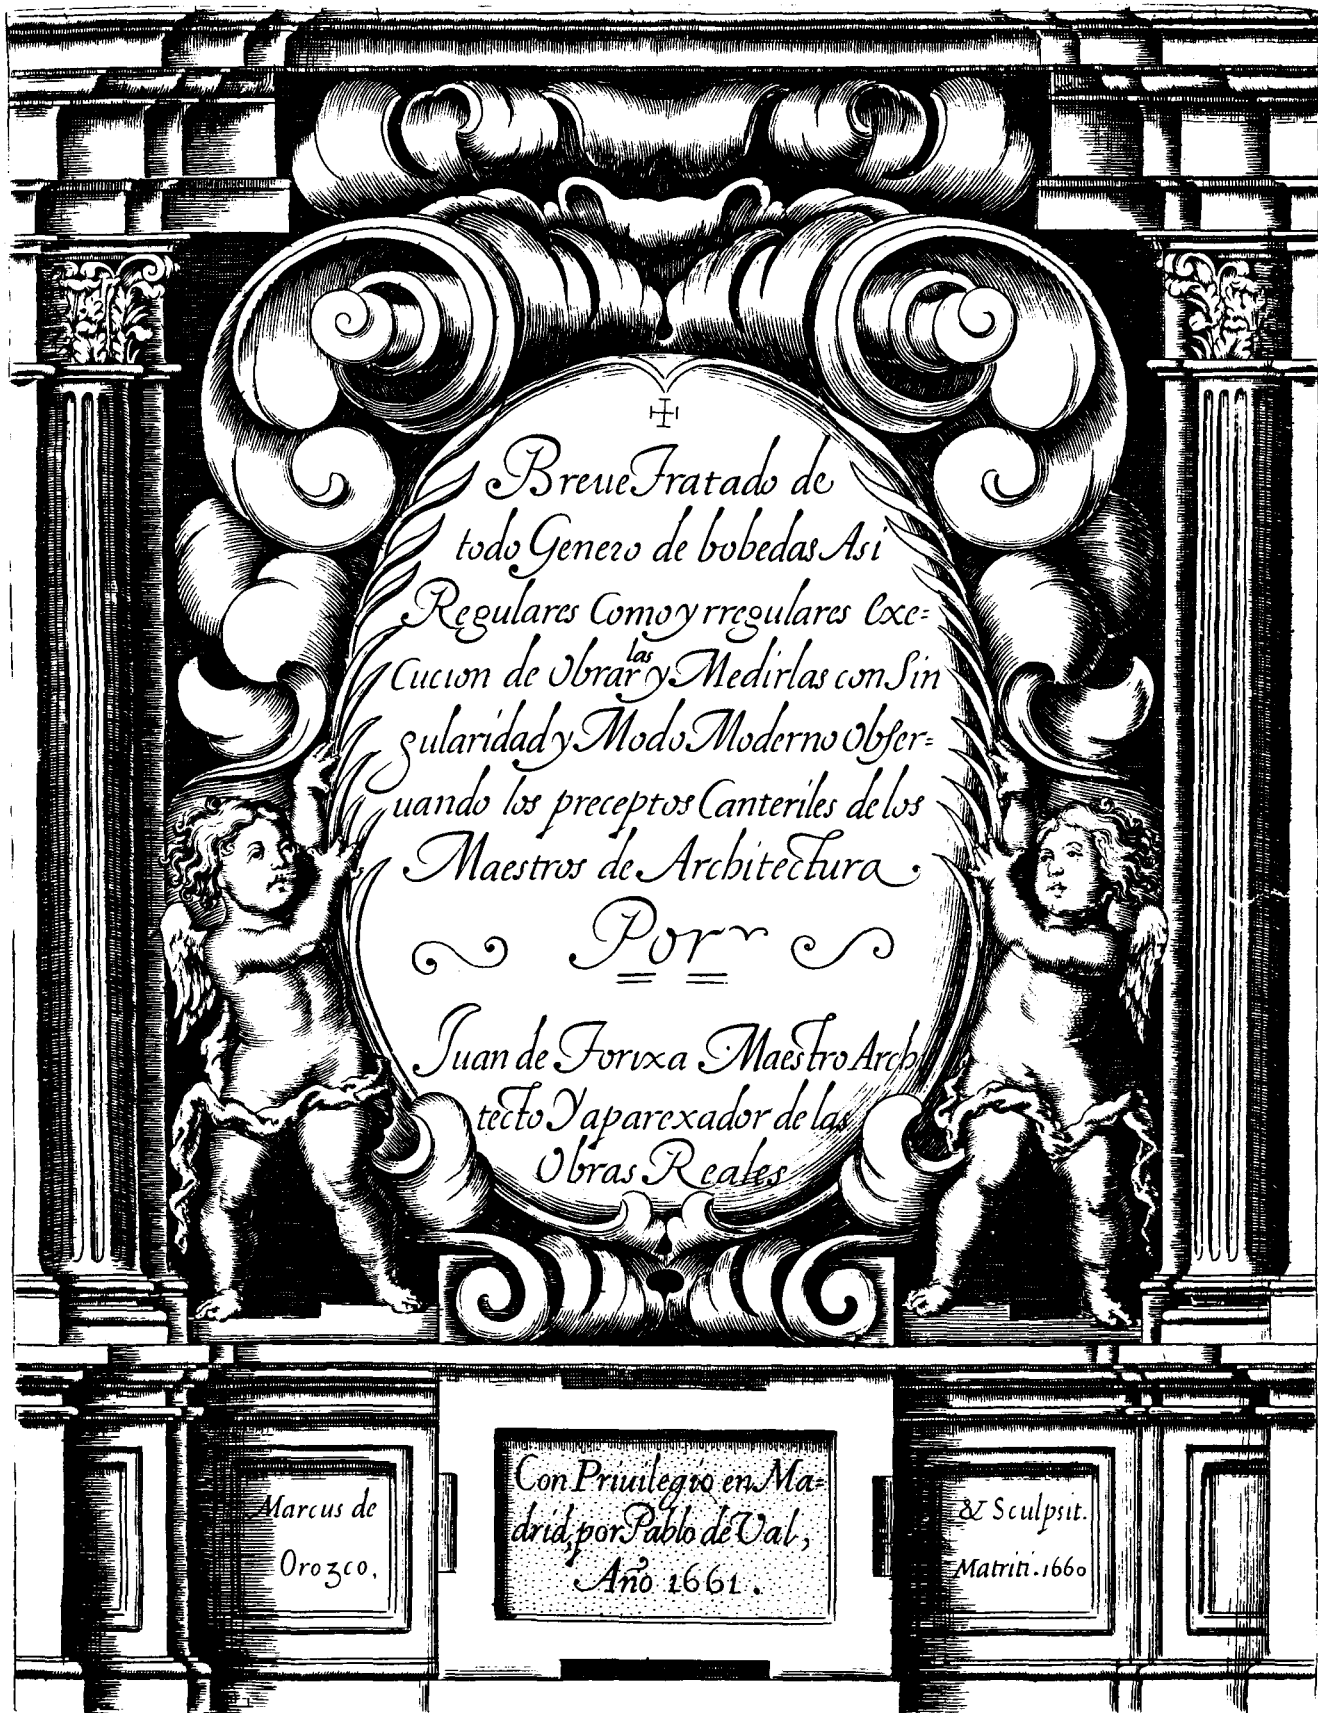 Breue Tratado de
todo Genero de bobedas Asi
Regulares Como yrregulares Exe=
cucion de obrarlas y Medirlas con Sin
gularidad y Modo Moderno obser=
uando los preceptos Canteriles de los
Maestros de Architectura.
Por
Juan de Torixa Maestro Archi
tecto Y aparexador de las
Obras Reales
Con Priuilegio en Ma=
drid, por Pablo de Val,
Año 1661.
Marcus de
Orozco,
& Sculpsit.
Matriti. 1660